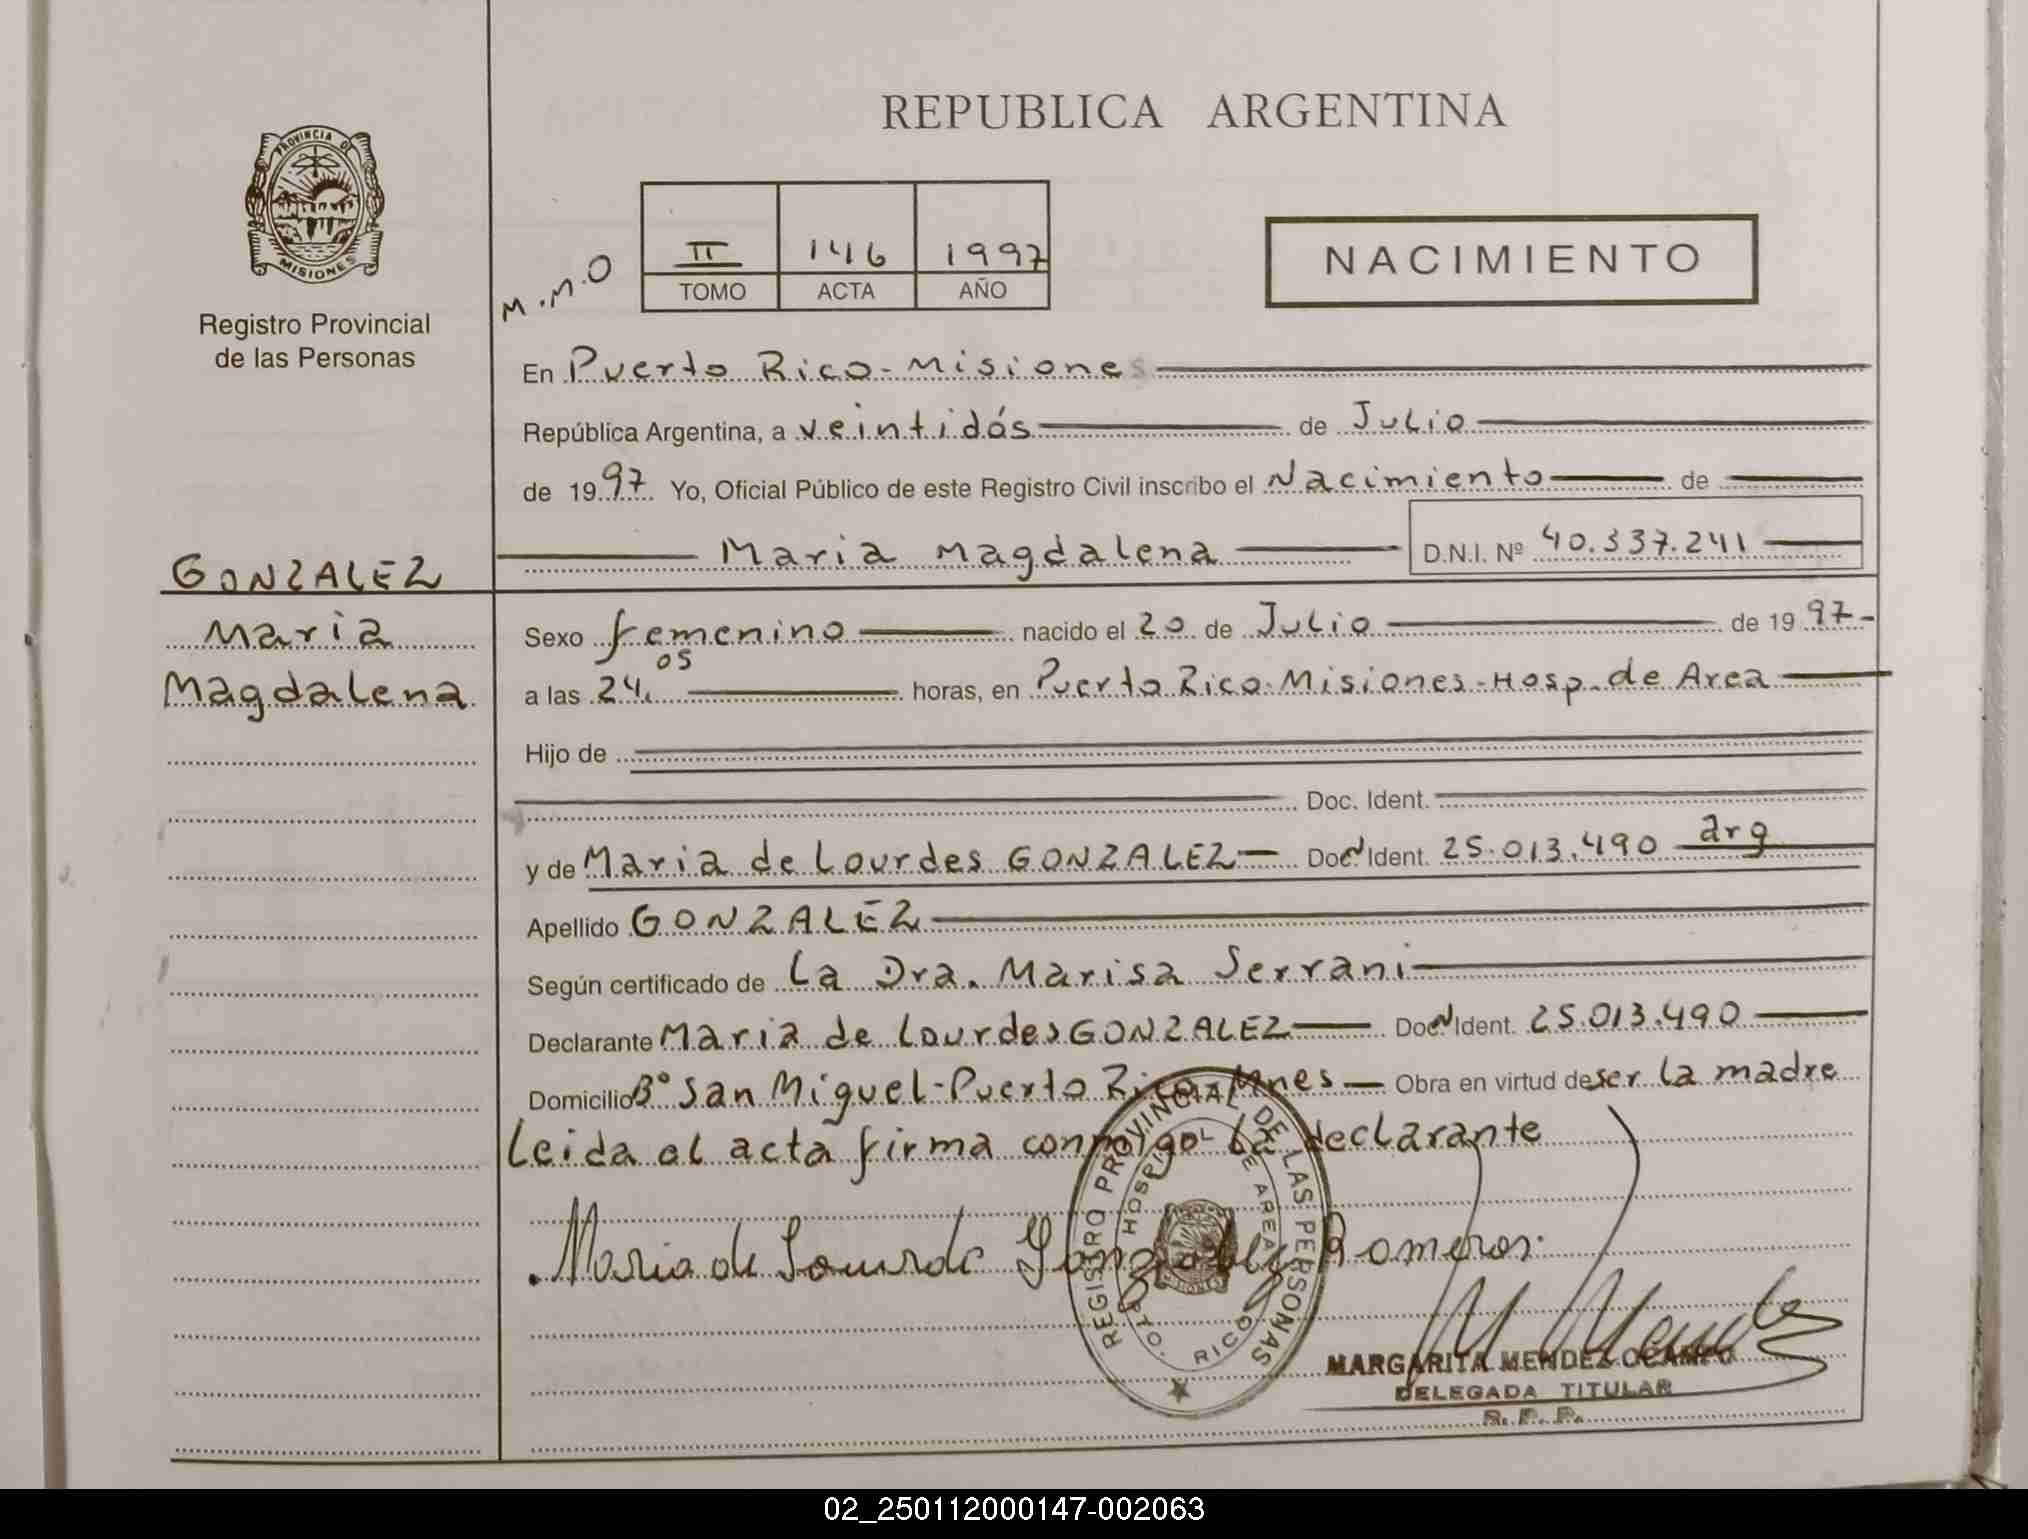 PROVINCIA DE
MISIONES
Registro Provincial
de las Personas
GONZALEZ
Maria
Magdalena
REPUBLICA ARGENTINA
M.M.O
II 146 1997
TOMO ACTA AÑO
NACIMIENTO
En Puerto Rico - Misiones
República Argentina, a veintidós de Julio
de 1997 Yo, Oficial Público de este Registro Civil inscribo el Nacimiento de
Maria Magdalena D.N.I. Nº 40.337.241
Sexo femenino nacido el 20 de Julio de 1997-
a las 24.05 horas, en Puerto Rico-Misiones-Hosp. de Area
Hijo de
Doc. Ident.
y de Maria de Lourdes GONZALEZ Doc. Ident. 25.013.490 arg
Apellido GONZALEZ
Según certificado de La Dra. Marisa Serrani
Declarante Maria de Lourdes GONZALEZ Doc. Ident. 25.013.490
Domicilio Bº San Miguel-Puerto Rico-Mnes Obra en virtud de ser la madre
Leida el acta firma conmigo la declarante
Maria de Lourdes Gonzalez Romeros.
REGISTRO PROVINCIAL DE LAS PERSONAS
HOSPITAL DE AREA
PTO. RICO
MARGARITA MENDEZ OCAMPO
DELEGADA TITULAR
R.P.P.
02_250112000147-002063